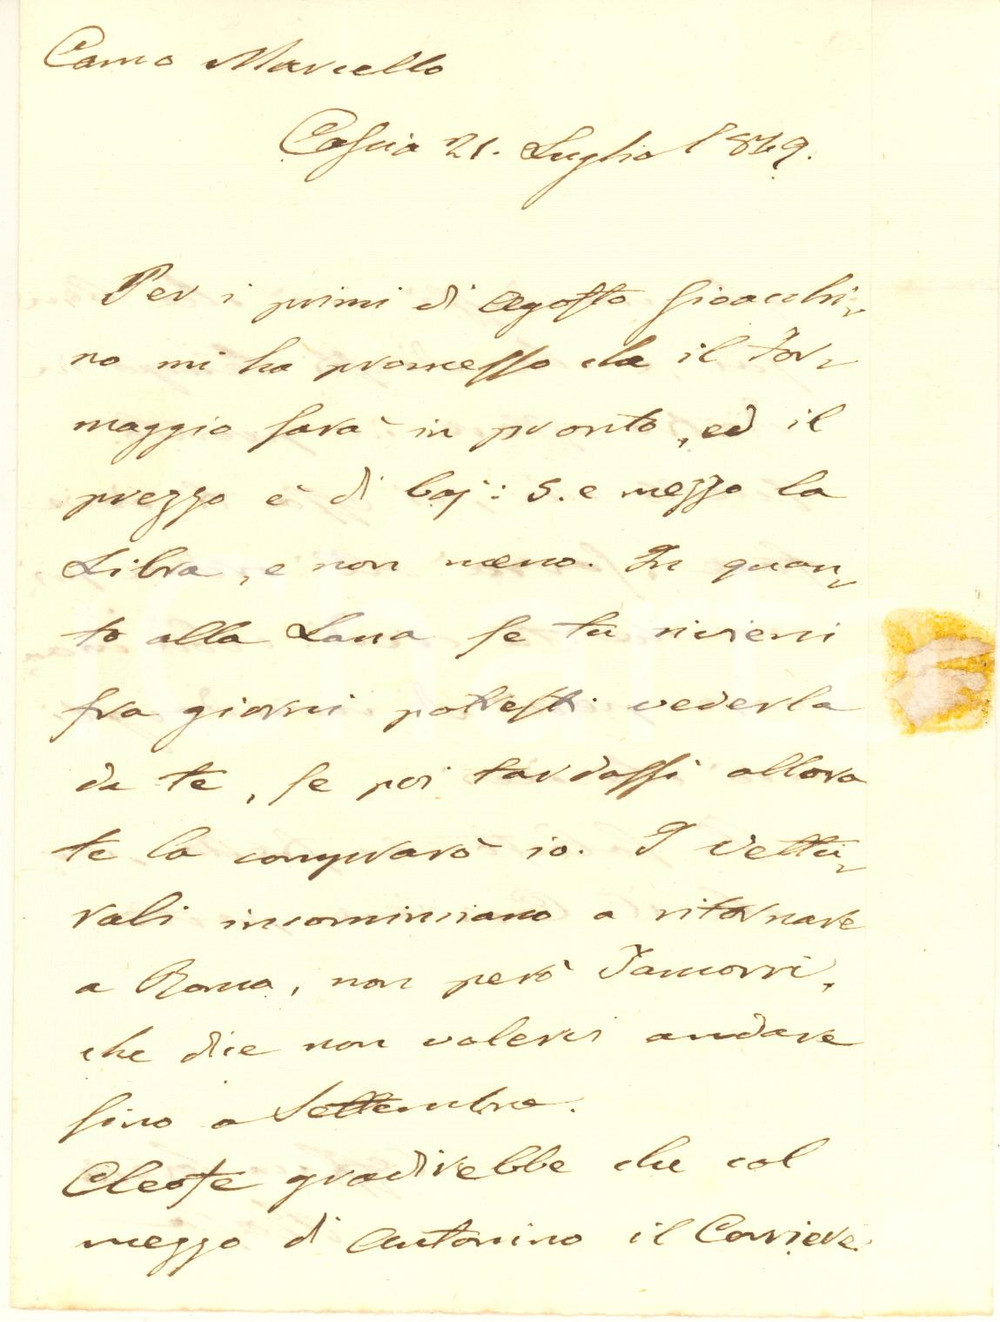 Caro Marcello
Cascia 21. Luglio 1869.
Per i primi di Agosto Gioacchi-
no mi ha promesso che il For-
maggio sarà in pronto, ed il
prezzo è di baj: 5. e mezzo la
Libra, e non meno. In quan-
to alla Lana se tu rivieni
fra giorni potresti vederla
da te, se poi tardassi allora
te la comprarò io. I Vettu-
rali incominciano a ritornare
a Roma, non però
che dice non volerci andare
fino a Settembre.
Cleofe gradirebbe che col
mezzo di Antonino il Corriere